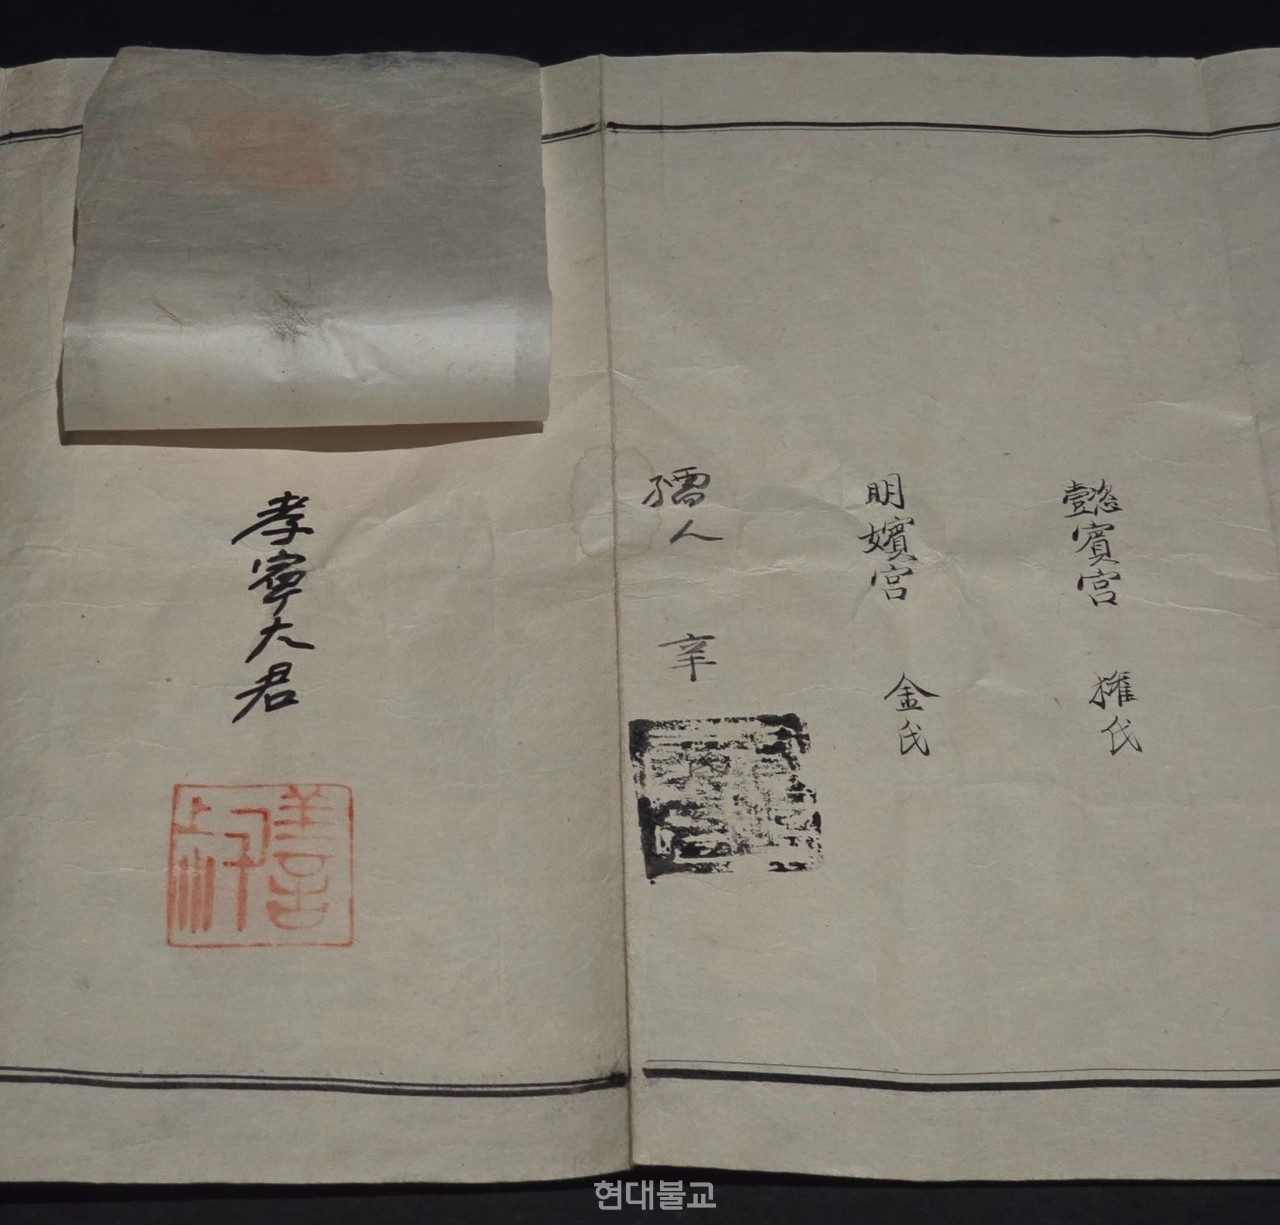 懿賓宮 權氏
明嬪宮 金氏
孺人 辛
孝寧大君
善子
현대불교